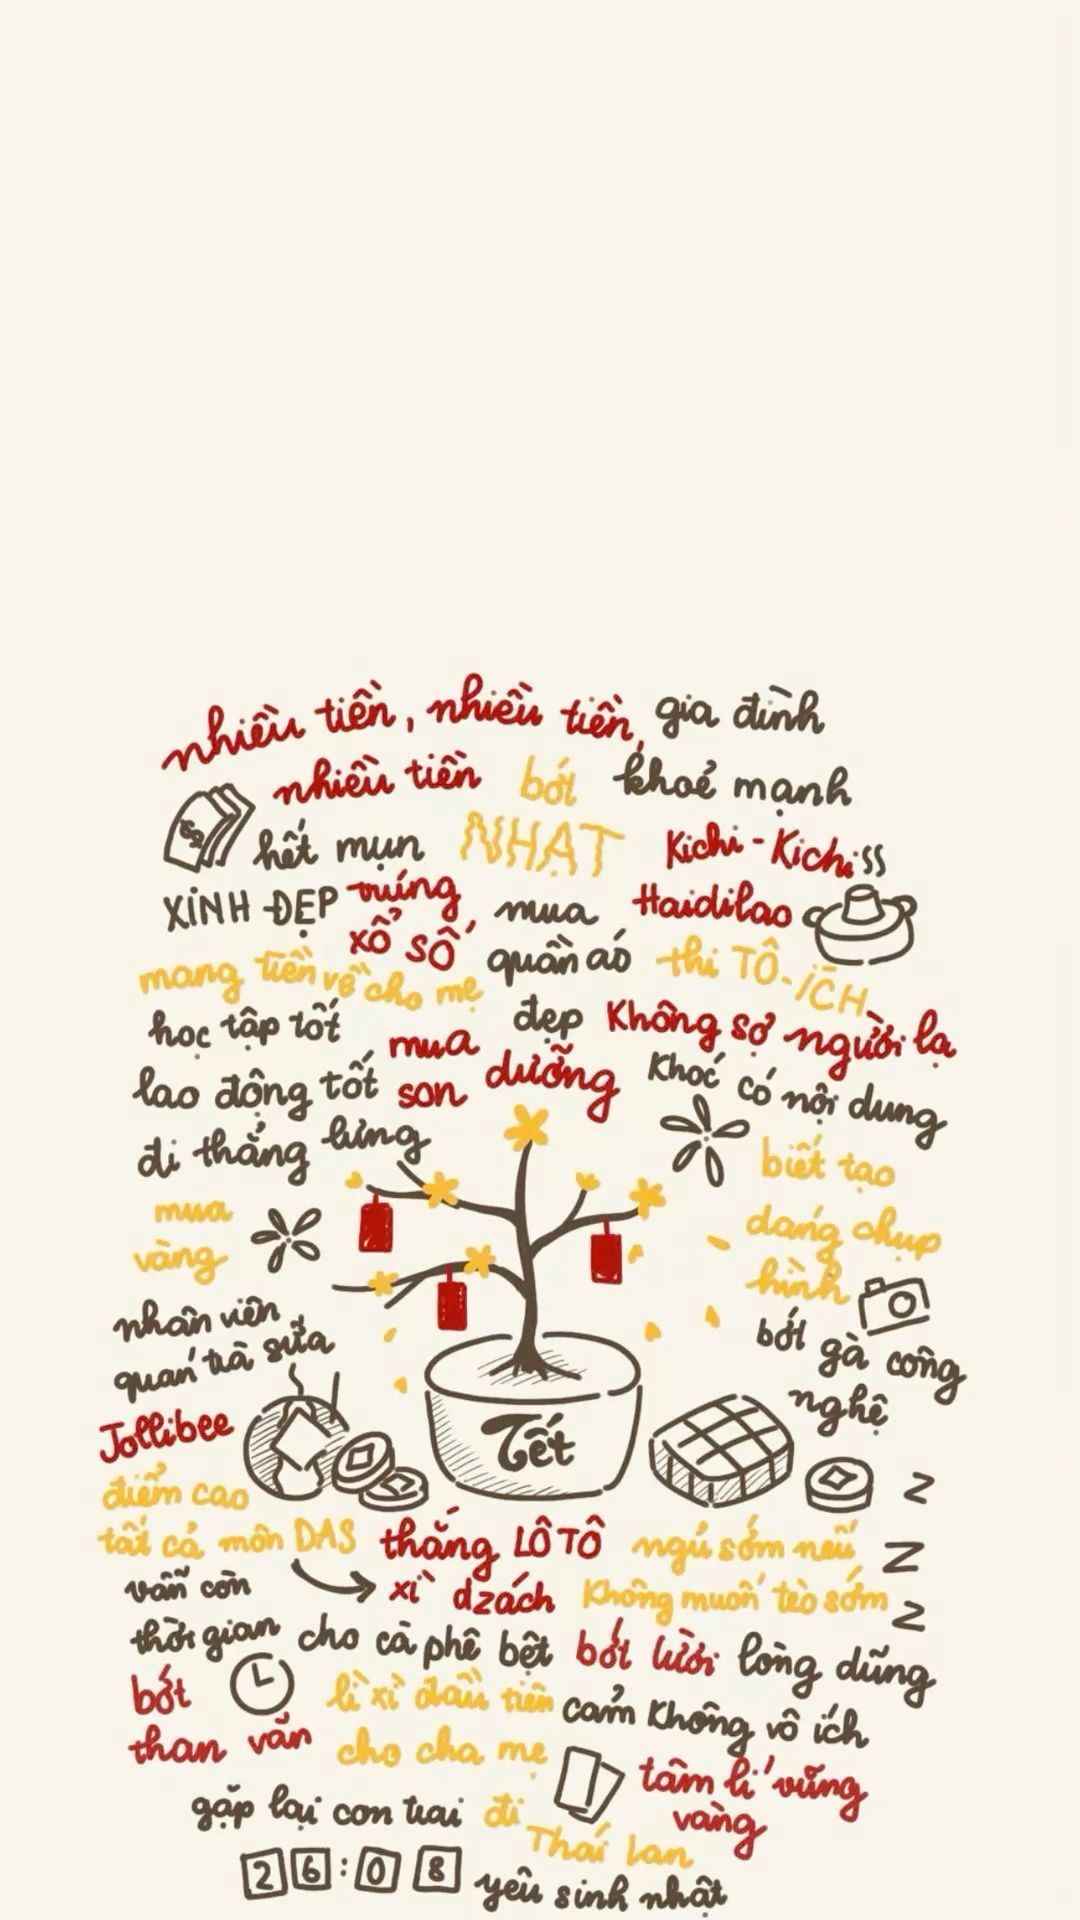 nhiều tiền, nhiều tiền, gia đình
nhiều tiền bớt khoẻ mạnh
hết mụn NHẠT Kichi-Kichi
XINH ĐẸP trúng mua Haidilao
xổ số quần áo thi TÔ-ÍCH
mang tiền về cho mẹ
học tập tốt đẹp Không sợ người lạ
mua
lao động tốt son dưỡng Khóc có nội dung
đi thẳng lưng
biết tạo
mua dáng chụp
vàng hình
nhân viên bớt gà công
quán trà sữa nghệ
Jollibee Tết
điểm cao Z
tất cả môn DAS thắng LÔ TÔ ngủ sớm nếu Z
vẫn còn xì dzách Không muốn tèo sớm Z
thời gian cho cà phê bệt bớt lười lòng dũng
bớt lì xì đầu tiên cảm Không vô ích
than vãn cho cha mẹ tâm lí vững
vàng
gặp lại con trai đi
Thái Lan
26:08 yêu sinh nhật